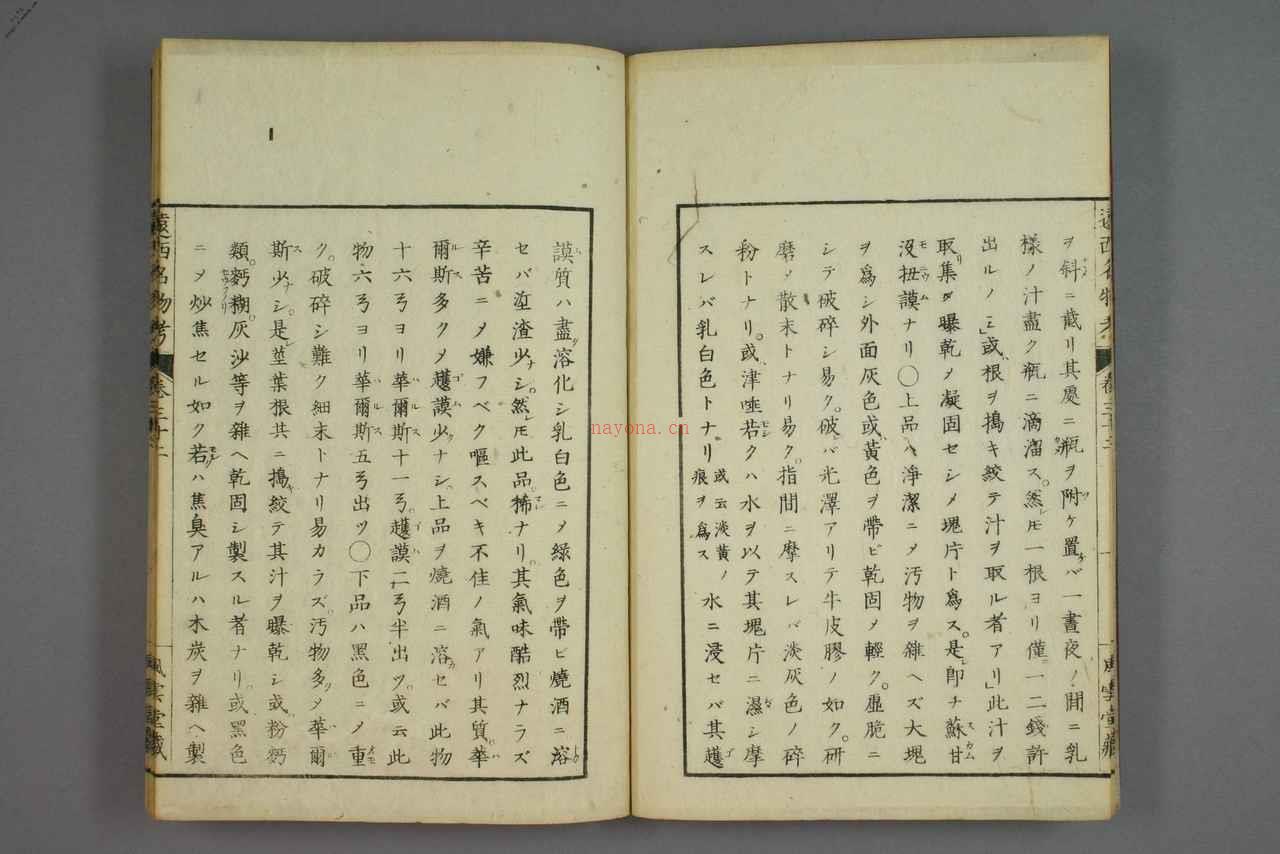 ヲ斜ニ截リ其處ニ瓶ヲ附ケ置バ一晝夜ノ間ニ乳
樣ノ汁盡ク瓶ニ滴溜ス。然レ𪜈一根ヨリ僅一二錢許
出ルノミ」或、根ヲ搗キ絞テ汁ヲ取ル者アリ」此汁ヲ
取リ集メ曝乾ノ凝固セシメ塊片ト爲ス。是レ卽チ蘇甘
沒扭謨ナリ〇上品ハ淨潔ニノ汚物ヲ雜ヘズ大塊
ヲ爲シ外面灰色或黃色ヲ帶ビ乾固ノ輕ク。虛脆ニ
シテ破碎シ易ク。破バ光澤アリテ牛皮膠ノ如ク。研
磨ノ散末トナリ易ク。指間ニ摩スレバ淡灰色ノ碎
粉トナリ。或津唾若クハ水ヲ以テ其塊片ニ濕シ摩
スレバ乳白色トナリ 或云淡黃ノ痕ヲ爲ス 水ニ浸セバ其䕫
謨質ハ盡溶化シ乳白色ニノ綠色ヲ帶ビ燒酒ニ溶
セバ渣少シ。然レ𪜈此品稀ナリ。其氣味酷烈ナラズ
辛苦ニノ嫌フベク嘔スベキ不佳ノ氣アリ其質華
爾斯多クノ謨少ナシ。上品ヲ燒酒ニ溶セバ此物
十六弓ヨリ華爾斯十一弓。謨二弓半出ツ」或云此
物六弓ヨリ華爾斯五弓出ツ〇下品ハ黑色ニノ重
ク。破碎シ難ク細末トナリ易カラズ。汚物多ク華爾
斯少シ。是莖葉根共ニ搗絞テ其汁ヲ曝乾シ或粉麪
類。麪糊。灰沙等ヲ雜ヘ乾固シ製スル者ナリ。或黑色
ニノ炒焦セルル如ク若ハ焦臭アルハ木炭ヲ雜ヘ製
遠西名物考
卷三十二
風雲堂藏
nayona.cn